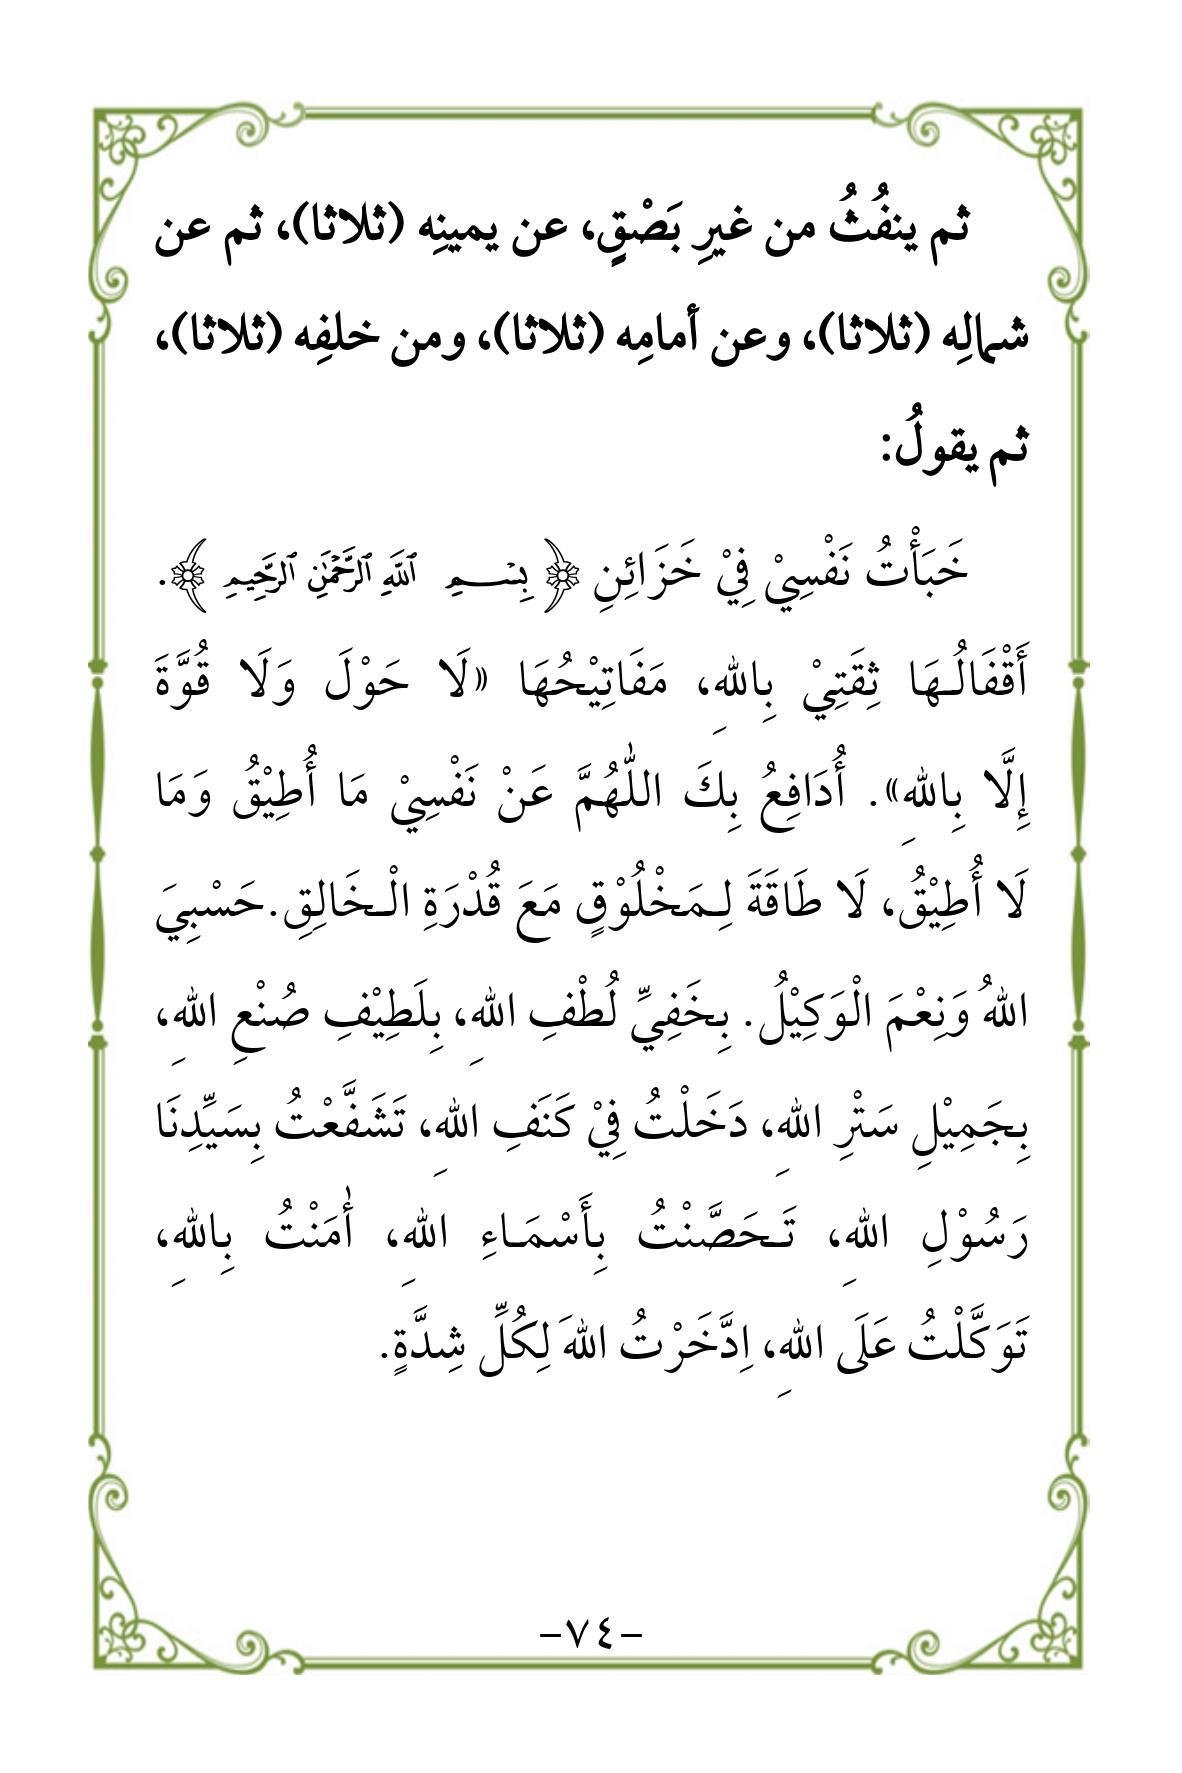 ثم ينفُثُ من غيرِ بَصْقٍ، عن يمينِه (ثلاثا)، ثم عن
شمالِه (ثلاثا)، وعن أمامِه (ثلاثا)، ومن خلفِه (ثلاثا)،
ثم يقولُ:
خَبَأْتُ نَفْسِيْ فِيْ خَزَائِنِ ﴿بِسْمِ ٱللَّهِ ٱلرَّحْمَٰنِ ٱلرَّحِيمِ﴾.
أَقْفَالُـهَا ثِقَتِيْ بِاللهِ، مَفَاتِيْحُهَا «لَا حَوْلَ وَلَا قُوَّةَ
إِلَّا بِاللهِ». أُدَافِعُ بِكَ اللّٰهُمَّ عَنْ نَفْسِيْ مَا أُطِيْقُ وَمَا
لَا أُطِيْقُ، لَا طَاقَةَ لِـمَخْلُوْقٍ مَعَ قُدْرَةِ الْـخَالِقِ.حَسْبِيَ
اللهُ وَنِعْمَ الْوَكِيْلُ. بِخَفِيِّ لُطْفِ اللهِ، بِلَطِيْفِ صُنْعِ اللهِ،
بِجَمِيْلِ سَتْرِ اللهِ، دَخَلْتُ فِيْ كَنَفِ اللهِ، تَشَفَّعْتُ بِسَيِّدِنَا
رَسُوْلِ اللهِ، تَـحَصَّنْتُ بِأَسْمَـاءِ اللهِ، أٰمَنْتُ بِاللهِ،
تَوَكَّلْتُ عَلَى اللهِ، اِدَّخَرْتُ اللهَ لِكُلِّ شِدَّةٍ.
–٧٤–